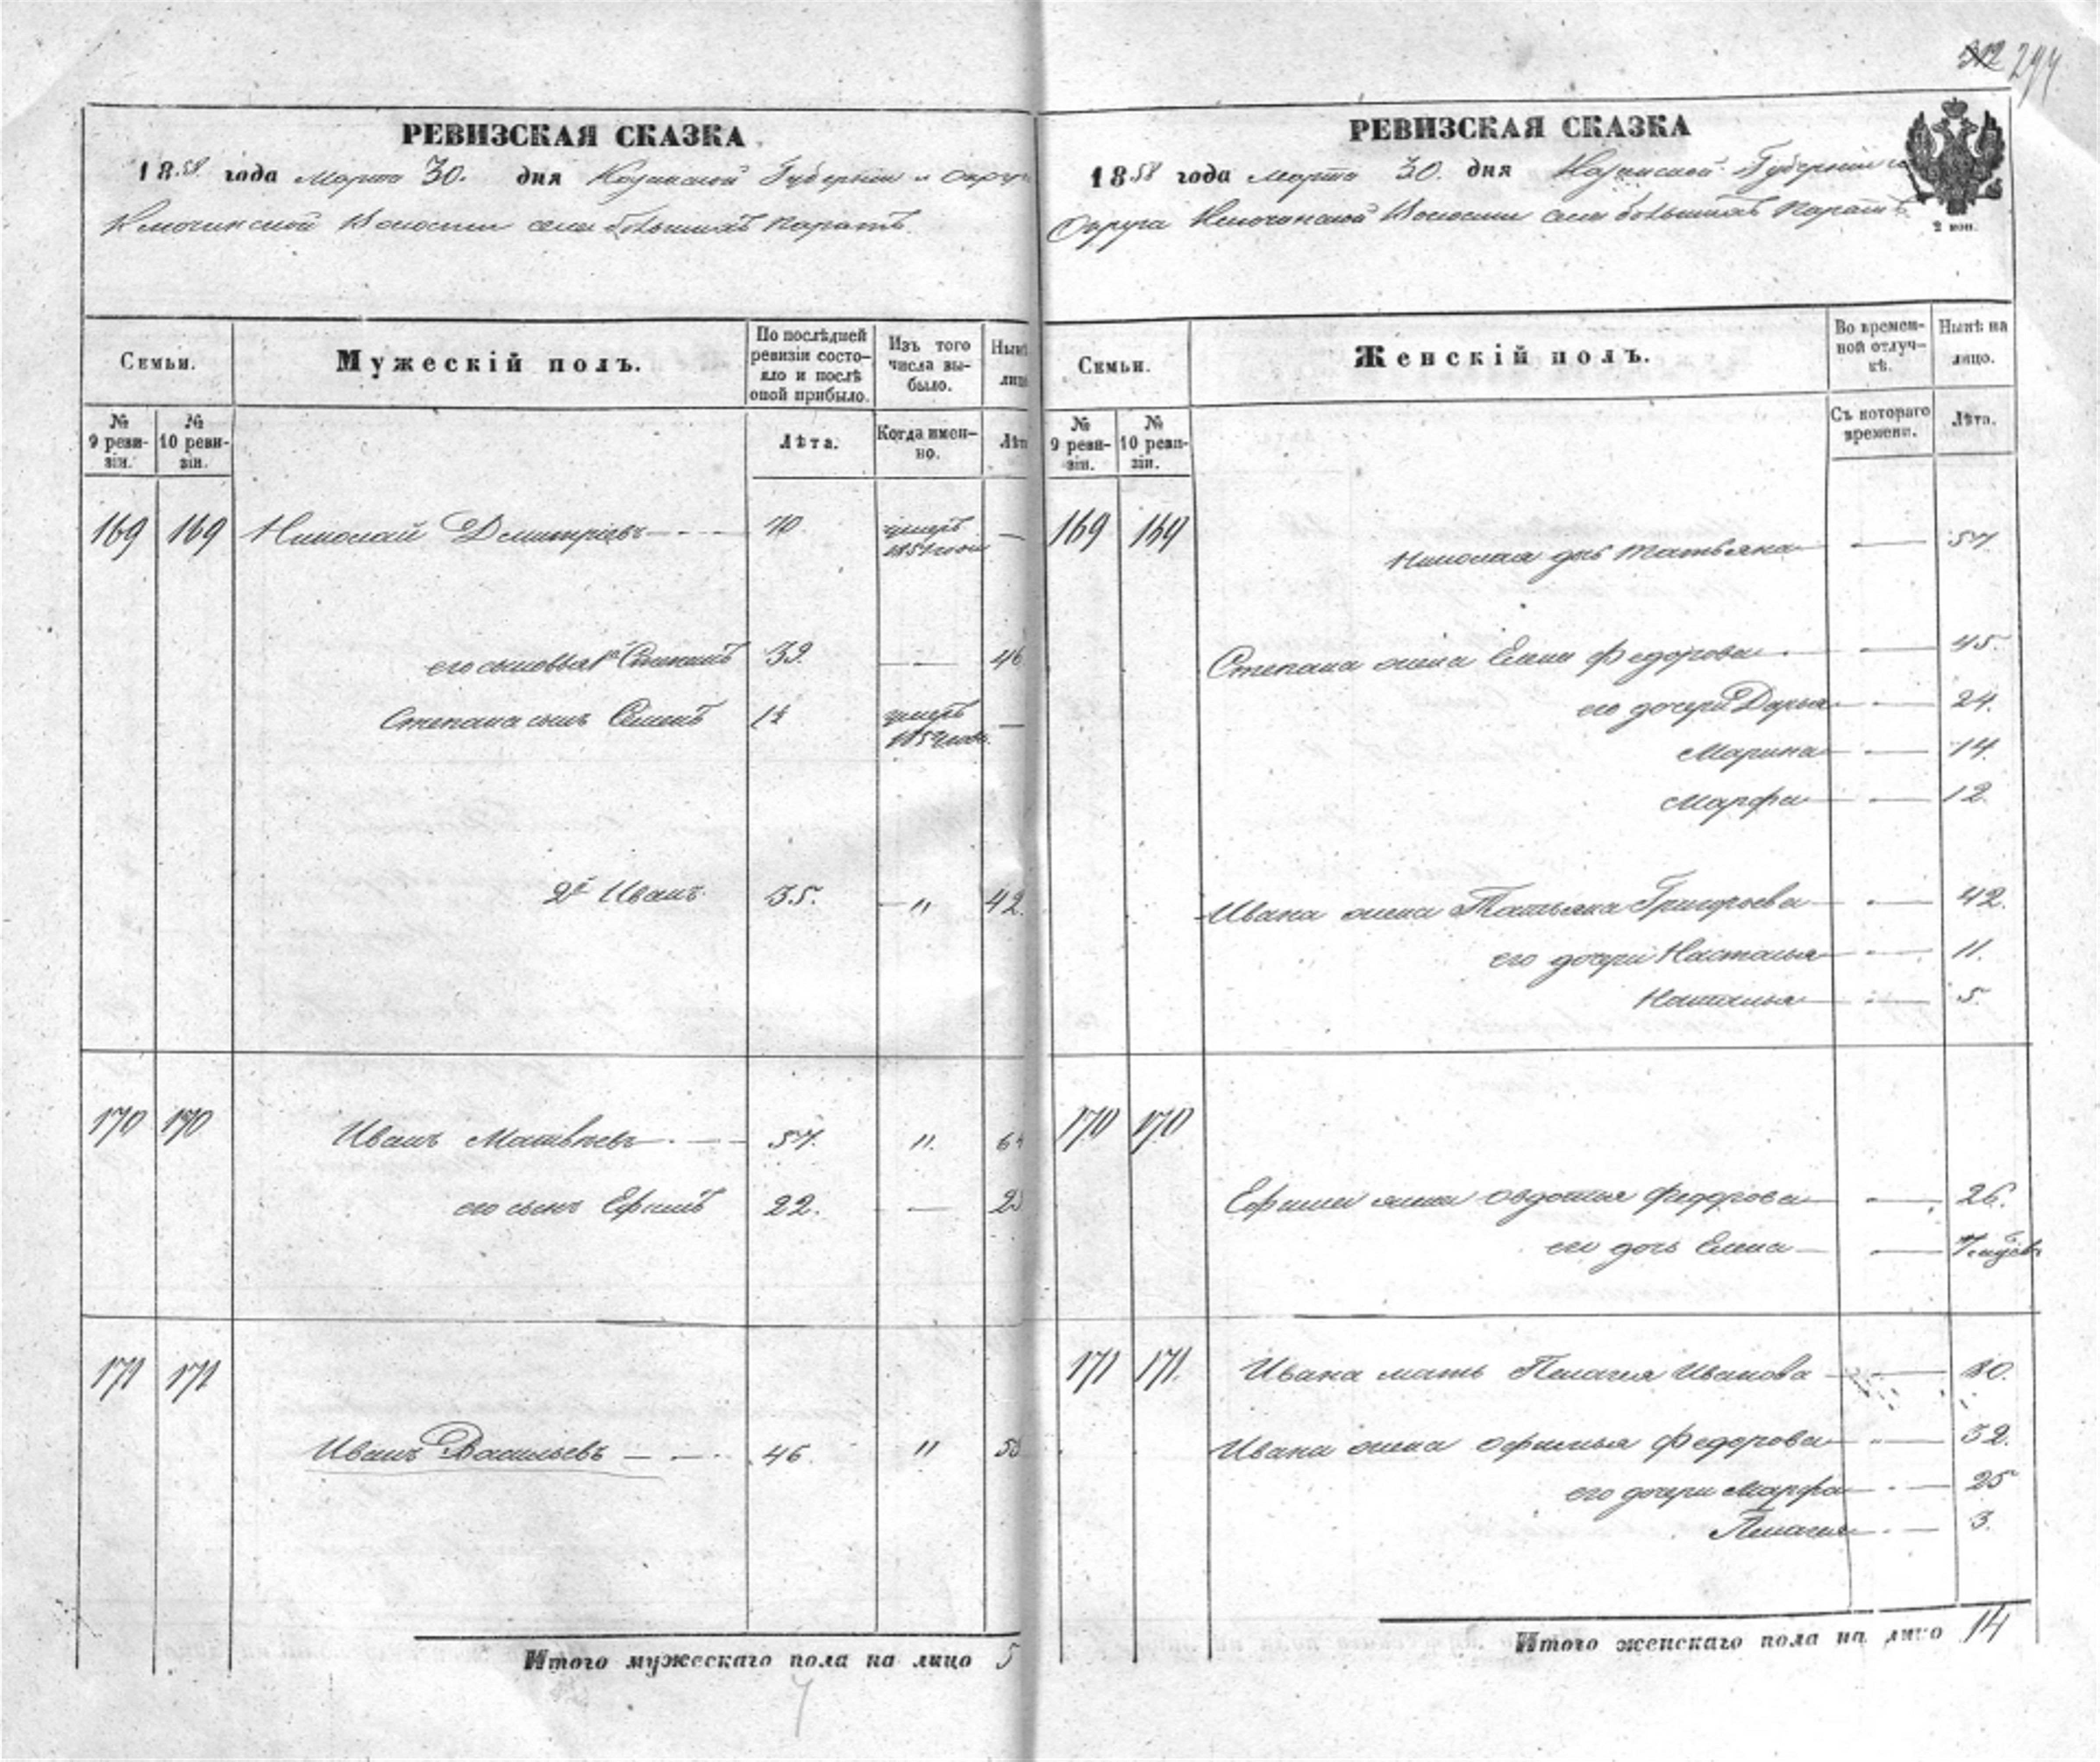 312 294
РЕВИЗСКАЯ СКАЗКА
1858 года марта 30. дня Казанской Губернии и Округ
Ключинской Волости села большихъ Каратъ.
Семьи.
Мужескій полъ.
По послѣдней ревизіи состояло и послѣ оной прибыло.
Изъ того числа выбыло.
Нынѣ лицо
№ 9 ревизіи.
№ 10 ревизіи.
Лѣта.
Когда именно.
Лѣт
169 169 Николай Дмитріевъ 70 умеръ —
его сыновья 1й Степанъ 39. — 46
Степана сынъ Семенъ 1½ умеръ —
2й Иванъ 35. — " 42.
170 170 Иванъ Матвѣевъ 57. " 64
его сынъ Ефимъ 22. — 29
171 171
Иванъ Васильевъ 46. " 53
Итого мужескаго пола на лицо 5
РЕВИЗСКАЯ СКАЗКА
1858 года марта 30. дня Казанской Губерніи и
Округа Ключинской Волости села большихъ Каратъ
2 коп.
Семьи.
Женскій полъ.
Во временной отлучкѣ.
Нынѣ на лицо.
№ 9 ревизіи.
№ 10 ревизіи.
Съ котораго времени.
Лѣта.
169 169 Николая дочь Татьяна — 57
Степана жена Елена Федорова — 45.
его дочери Дарья — 24.
Марина — 14.
Марфа — 12.
Ивана жена Татьяна Григорьева — 42.
его дочери Настасья — 11.
Наталья — 5.
170 170
Ефима жена Овдотья Федорова — 26.
его дочь Елена — 7
171 171. Ивана мать Пелагея Иванова — 80.
Ивана жена Офимья Федорова — 52.
его дочери Марфа — 25
Пелагея — 3.
Итого женскаго пола на лицо 14